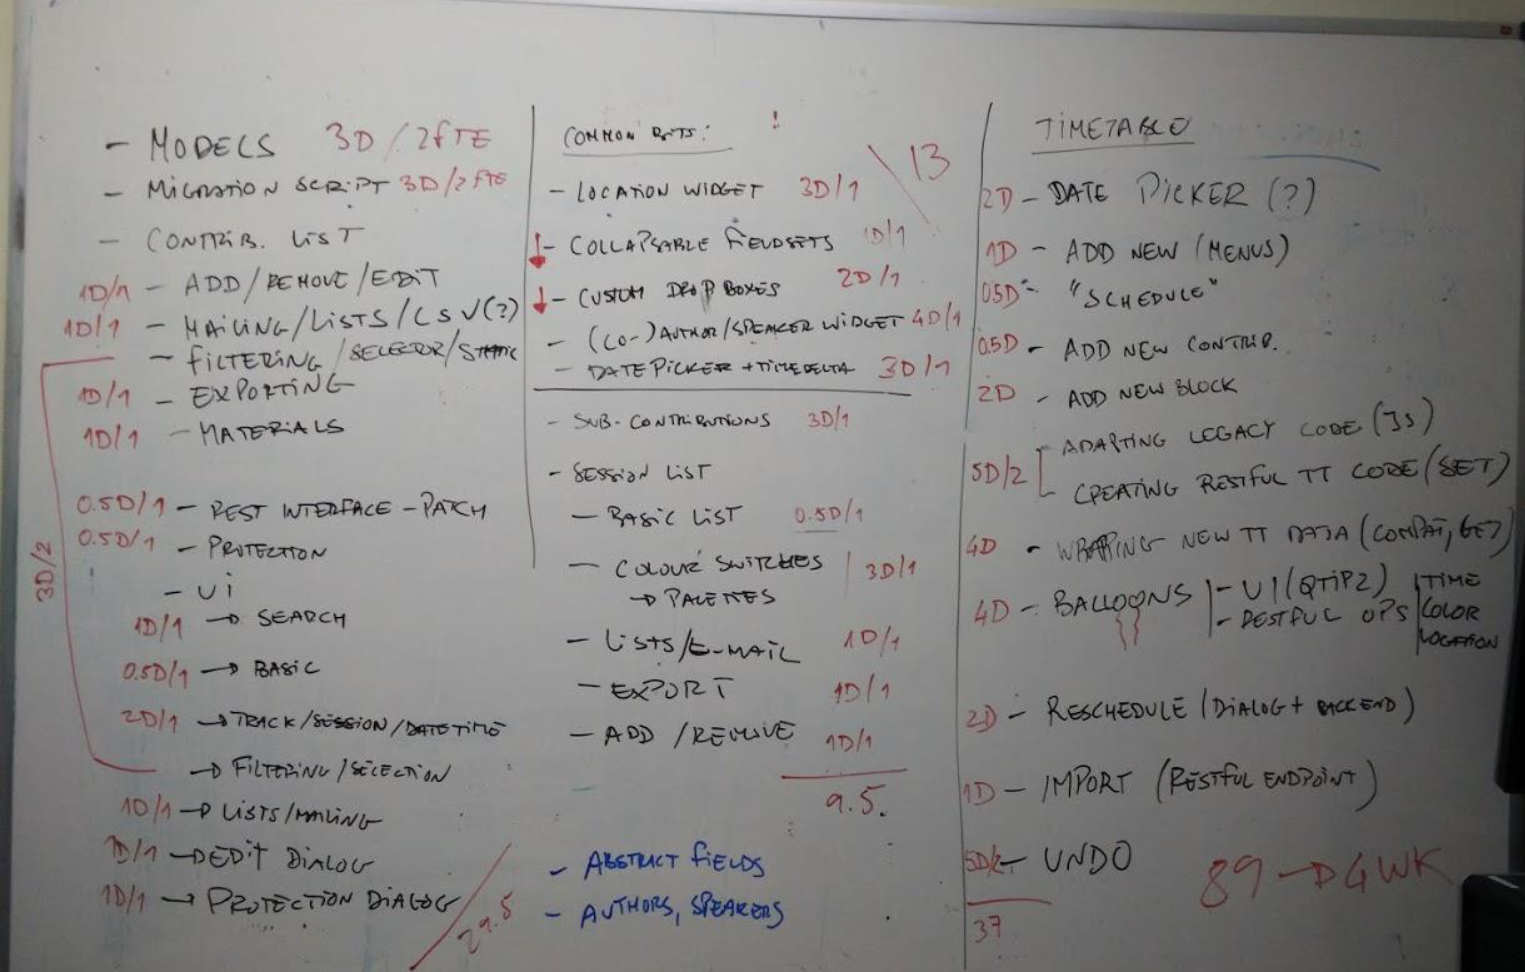 - MODELS 3D / 2FTE
- MIGRATION SCRIPT 3D/2FTE
- CONTRIB. LIST
1D/1 - ADD/REMOVE/EDIT
1D/1 - MAILING/LISTS/CSV(?)
- FILTERING/SELECTOR/STATIC
1D/1 - EXPORTING
1D/1 - MATERIALS
3D/2
0.5D/1 - REST INTERFACE - PATCH
0.5D/1 - PROTECTION
- UI
1D/1 → SEARCH
0.5D/1 → BASIC
2D/1 → TRACK/SESSION/DATETIME
→ FILTERING/SELECTION
1D/1 → LISTS/MAILING
1D/1 → EDIT DIALOG
1D/1 → PROTECTION DIALOG
29.5
COMMON BITS: !
13
- LOCATION WIDGET 3D/1
↓ - COLLAPSABLE FIELDSETS 1D/1
↓ - CUSTOM DROP BOXES 2D/1
- (CO-)AUTHOR/SPEAKER WIDGET 4D/1
- DATE PICKER + TIMEDELTA 3D/1
- SUB-CONTRIBUTIONS 3D/1
- SESSION LIST
- BASIC LIST 0.5D/1
- COLOUR SWITCHES | 3D/1
→ PALETTES
- LISTS/E-MAIL 1D/1
- EXPORT 1D/1
- ADD /REMOVE 1D/1
9.5.
- ABSTRACT FIELDS
- AUTHORS, SPEAKERS
TIMETABLE
2D - DATE PICKER (?)
1D - ADD NEW (MENUS)
0.5D - "SCHEDULE"
0.5D - ADD NEW CONTRIB.
2D - ADD NEW BLOCK
5D/2 [ ADAPTING LEGACY CODE (JS)
CREATING RESTFUL TT CODE (SET)
4D - WRAPPING NEW TT DATA (COMPAT, GET)
4D - BALLOONS | - UI (QTIP2) | TIME
- RESTFUL OPS | COLOR
LOCATION
2D - RESCHEDULE (DIALOG + BACKEND)
1D - IMPORT (RESTFUL ENDPOINT)
5D/2 - UNDO
37
89 → 4WK